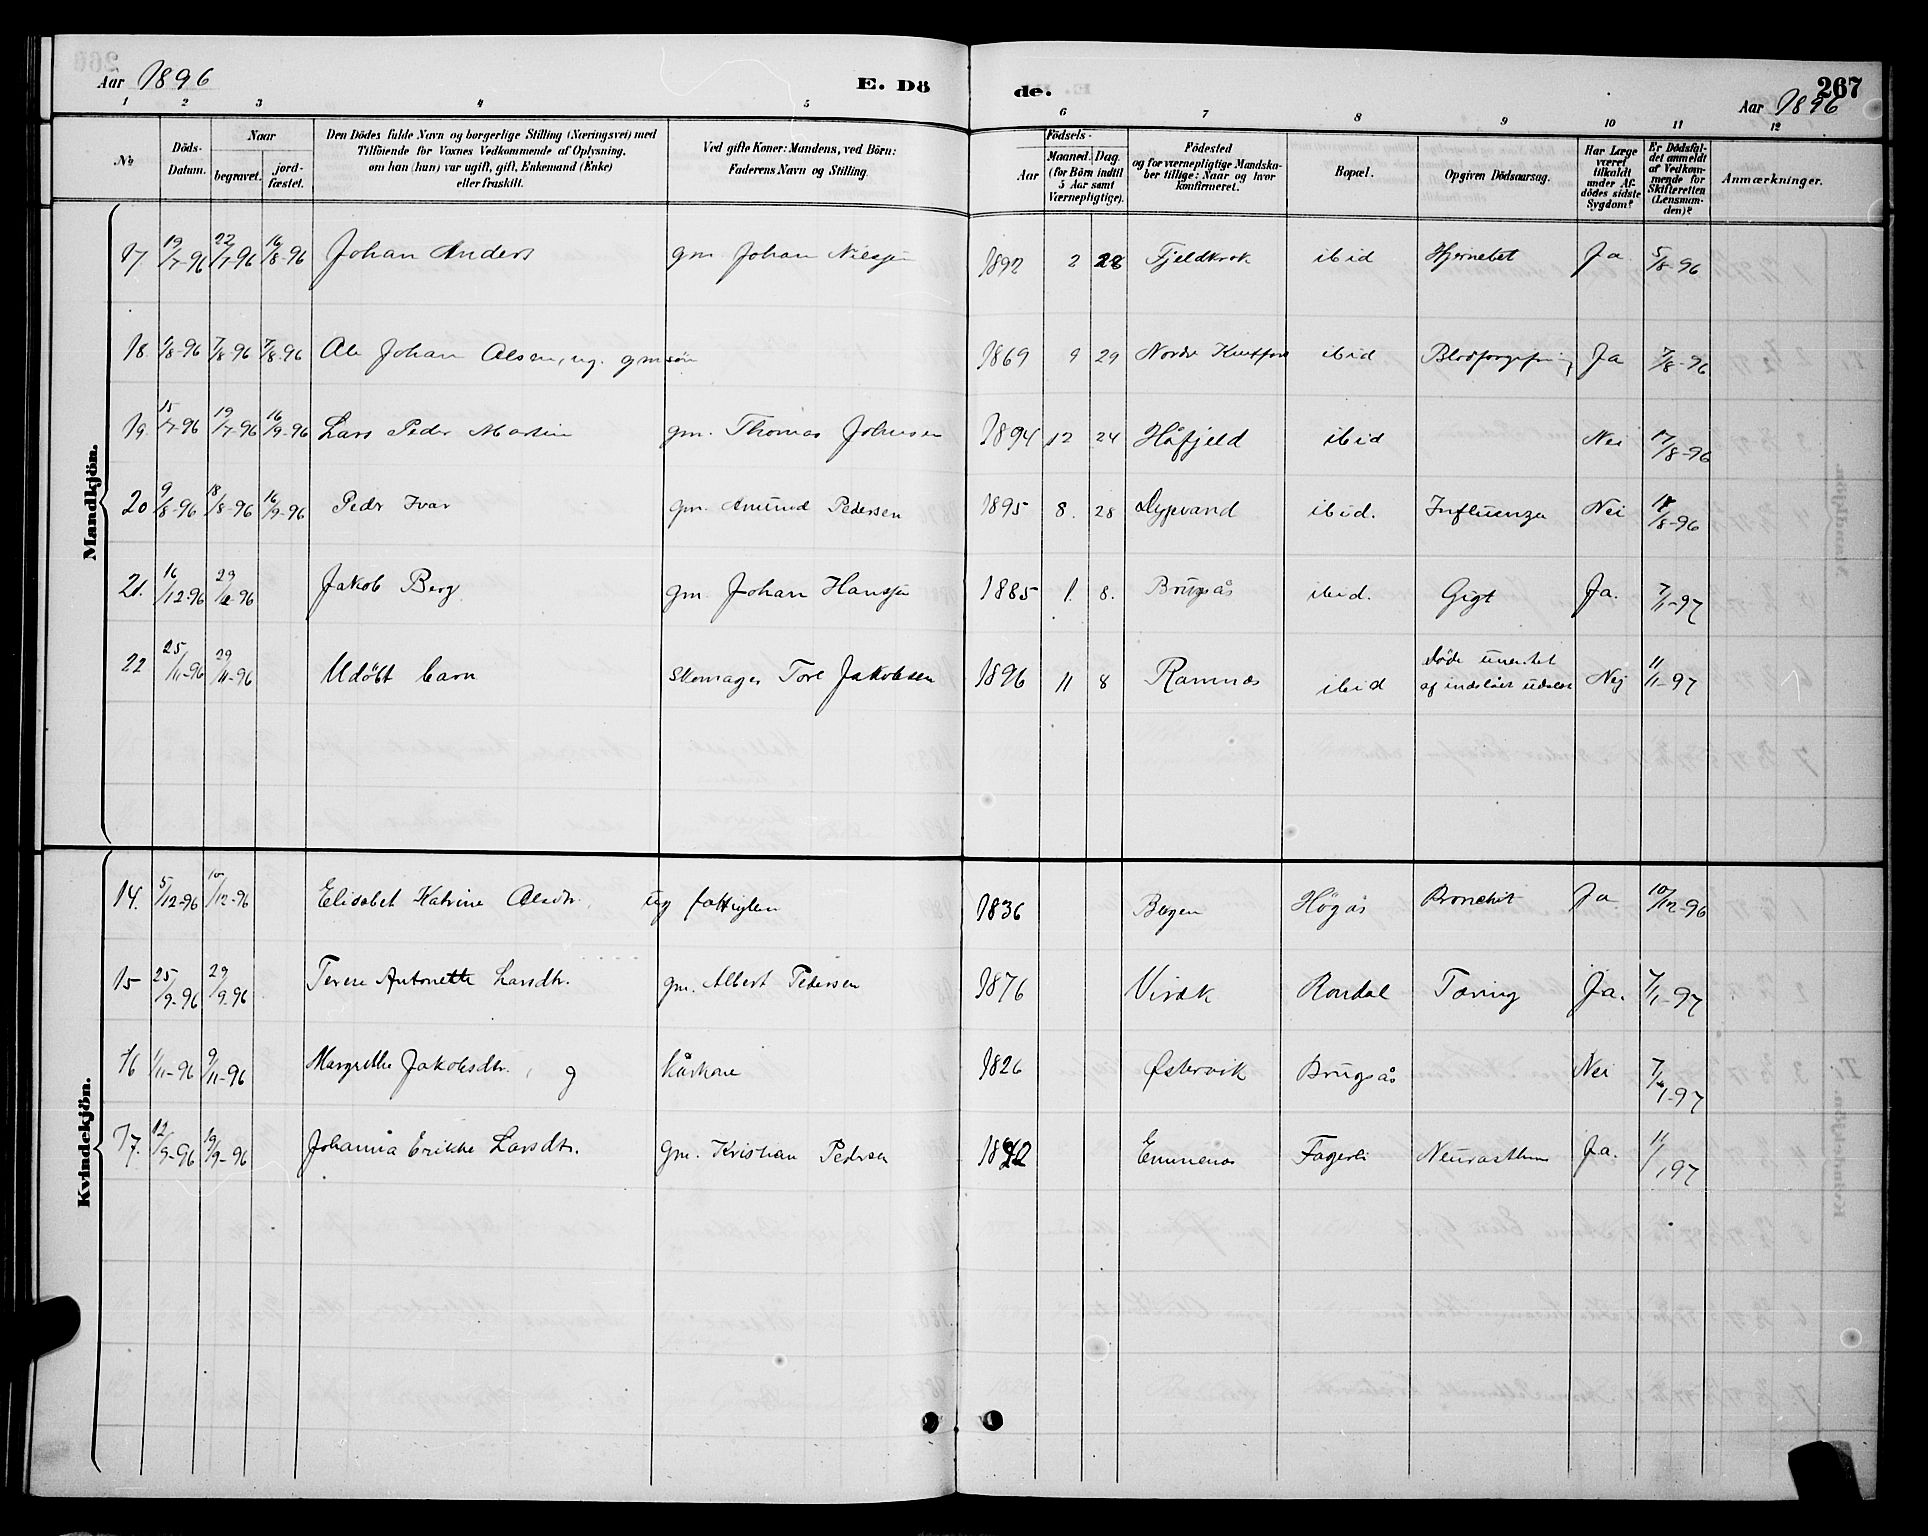 Aar 1896 E. Dö de. 267
Aar 1896
1 2 3 4 5 6 7 8 9 10 11 12
No
Döds-Datum.
Naar
begravet.
jord-fæstet.
Den Dödes fulde Navn og borgerlige Stilling (Næringsvei) med
Tilföiende for Voxnes Vedkommende af Oplysning,
om han (hun) var ugift, gift, Enkemand (Enke)
eller fraskilt.
Ved gifte Koner: Mandens, ved Börn:
Faderens Navn og Stilling.
Födsels-
Aar
Maaned. Dag.
(for Börn indtil
5 Aar samt
Værnepligtige).
Födested
og for værnepligtige Mandska-
ber tillige: Naar og hvor
konfirmeret.
Bopæl.
Opgiven Dödsaarsag.
Har Læge
været
tilkaldt
under Af-
dödes sidste
Sygdom?
Er Dödsfal-
det anmeldt
af Vedkom-
mende for
Skifteretten
(Lensman-
den)?
Anmærkninger.
Mandkjön.
17. 19/7-96 22/7-96 16/8-96 Johan Anders gm. Johan Nilssen 1892 2 28 Fjeldkrok ibid Hjernebet Ja 5/8-96
18 2/8-96 7/8-96 7/8-96 Ole Johan Olsen, ug. gmsøn 1869 9 29 Nordre ibid Blodforgiftning Ja 7/8-96
19. 15/7-96 19/7-96 16/9-96 Lars Peder Martin gm. Thomas Johnsen 1894 12 24 Håfjeld ibid Nei 17/8-96
20 9/8-96 18/8-96 16/9-96 Peder Ivar gm. Amund Pedersen 1895 8. 28 Dypvand ibid. Influenza Nei 18/8-96
21. 16/12-96 29/12-96 Jakob Berg gm. Johan Hanssen 1885 1. 8. Brugsås ibid. Gigt Ja. 7/1-97
22 25/11-96 29/11-96 Udöbt barn Skomager Tore Jakobsen 1896 11 8 Ramnes ibid døde uventet
af indslået udslæt Nej 11/1-97
Kvindekjön.
14. 5/12-96 10/12-96 Elisabet Katrine Olsdtr. ug fattiglem 1836 Bergen Högås Bronchit Ja. 10/12-96
15 25/9-96 29/9-96 Terese Antonette Larsdtr. gm. Albert Pedersen 1876 Virak Rondal Tæring Ja. 7/1-97
16 1/11-96 9/11-96 Margrethe Jakobsdtr. , g kårkone 1826 Østervik Brugsås Nei 7/1-97
17. 12/9-96 19/9-96 Johanna Erikke Larsdtr. gm. Kristian Pedersen Emmenes Fagerli Neurasthen Ja. 11/1 97